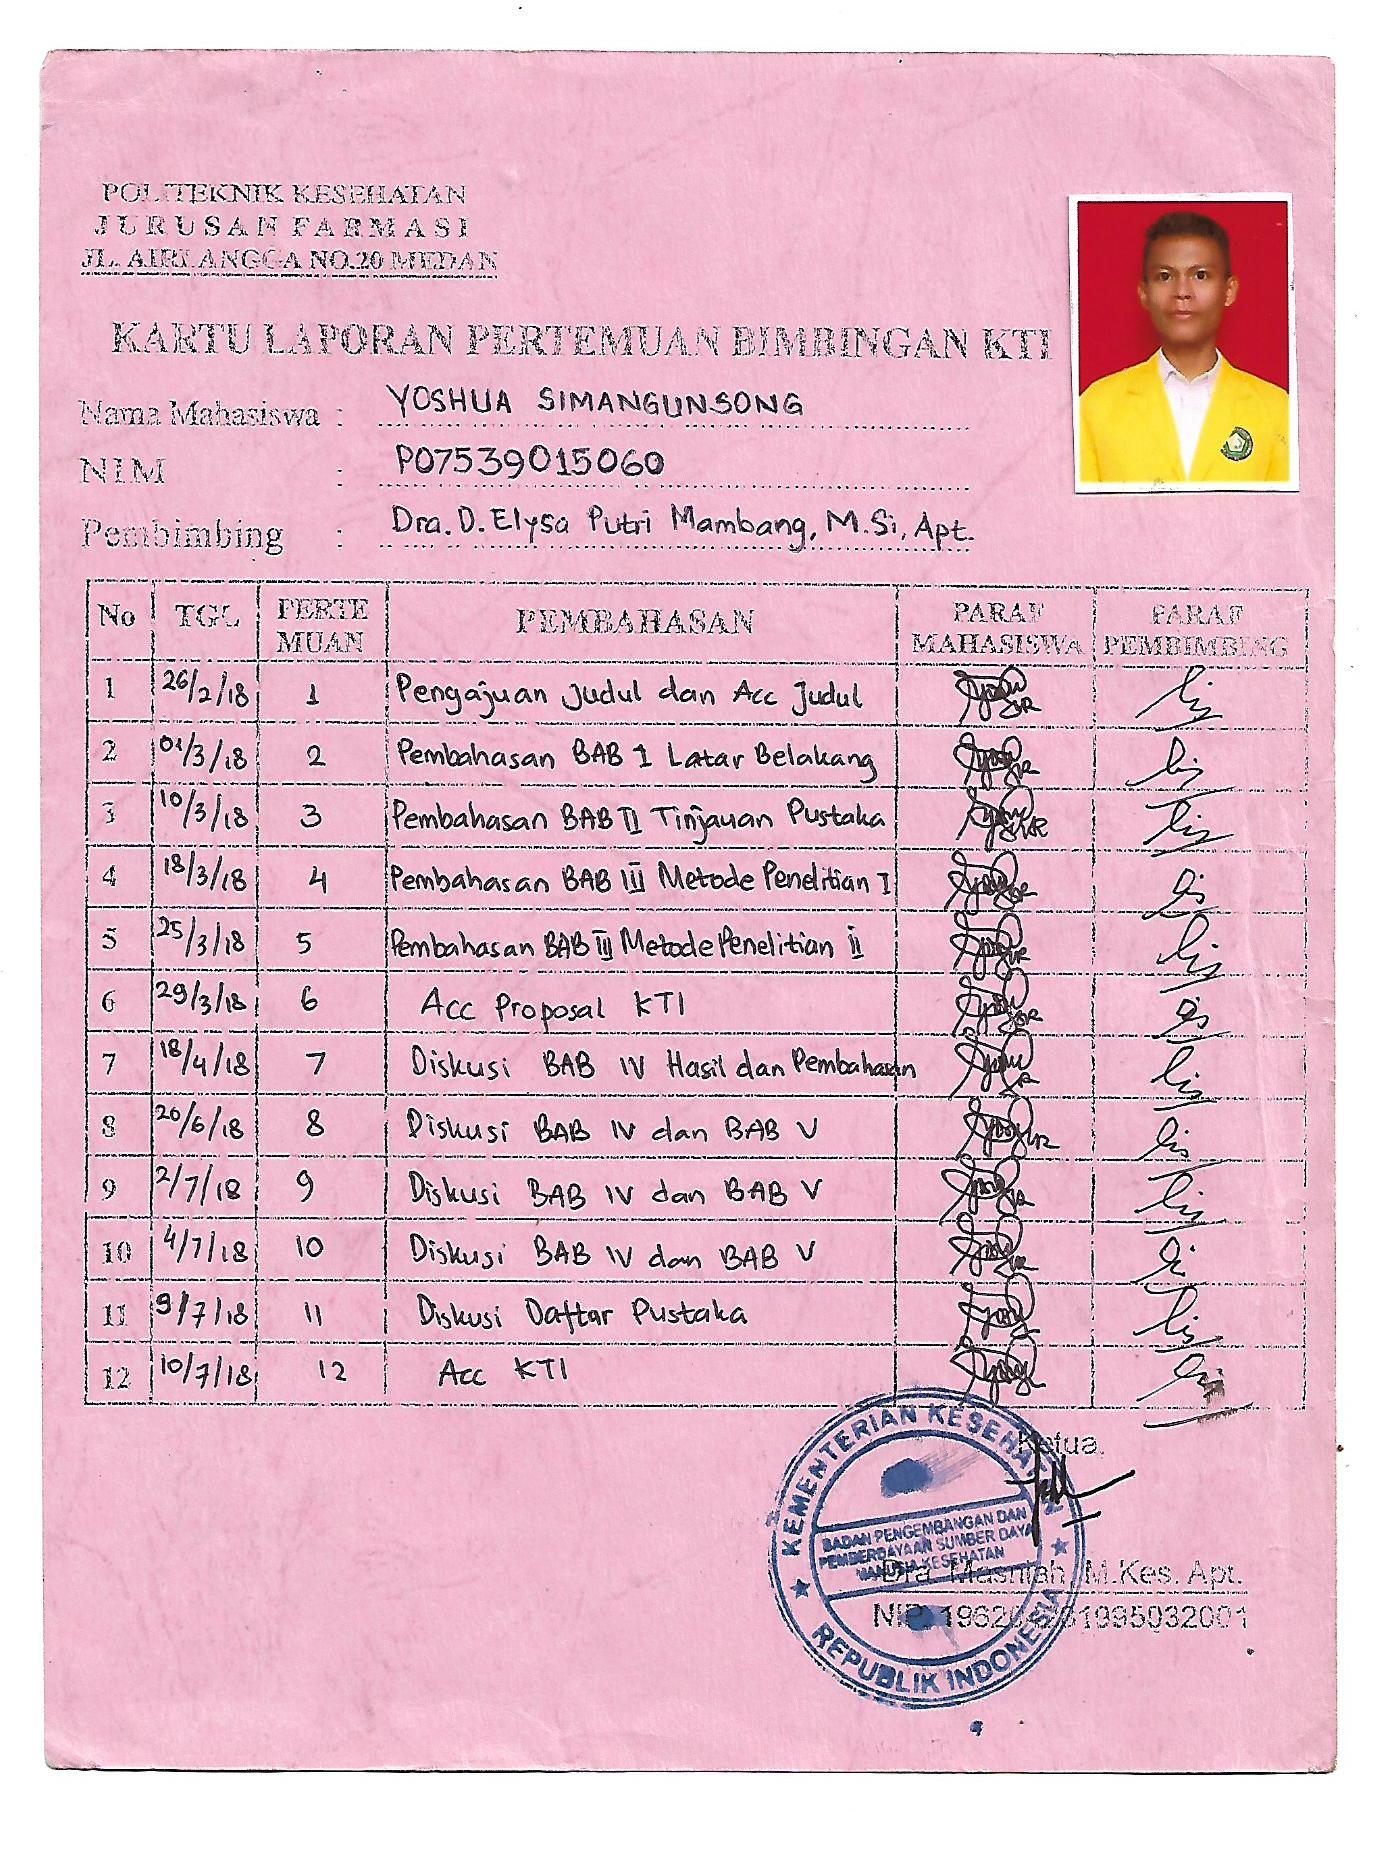 POLITEKNIK KESEHATAN
JURUSAN FARMASI
JL. AIRLANGGA NO.20 MEDAN
KARTU LAPORAN PERTEMUAN BIMBINGAN KTI
Nama Mahasiswa : YOSHUA SIMANGUNSONG
NIM : P07539015060
Pembimbing : Dra. D. Elysa Putri Mambang, M.Si, Apt.
No TGL PERTE MUAN PEMBAHASAN PARAF MAHASISWA PARAF PEMBIMBING
1 26/2/18 1 Pengajuan Judul dan Acc Judul
2 01/3/18 2 Pembahasan BAB 1 Latar Belakang
3 10/3/18 3 Pembahasan BAB II Tinjauan Pustaka
4 18/3/18 4 Pembahasan BAB III Metode Penelitian I
5 25/3/18 5 Pembahasan BAB III Metode Penelitian ii
6 29/3/18 6 Acc Proposal KTI
7 18/4/18 7 Diskusi BAB IV Hasil dan Pembahasan
8 20/6/18 8 Diskusi BAB IV dan BAB V
9 2/7/18 9 Diskusi BAB IV dan BAB V
10 4/7/18 10 Diskusi BAB IV dan BAB V
11 9/7/18 11 Diskusi Daftar Pustaka
12 10/7/18 12 Acc KTI
Ketua,
KEMENTERIAN KESEHATAN
BADAN PENGEMBANGAN DAN
PEMBERDAYAAN SUMBER DAYA
MANUSIA KESEHATAN
REPUBLIK INDONESIA
Dra. Masniah, M.Kes. Apt.
NIP.